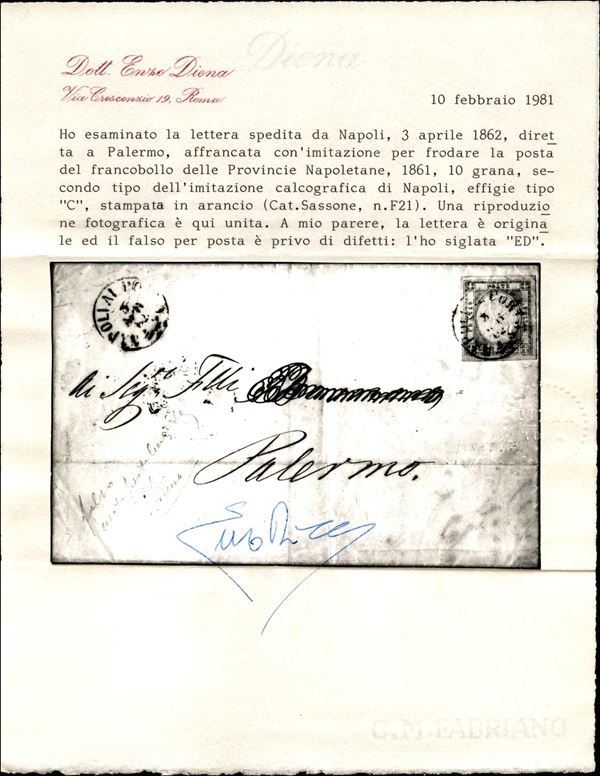 Diena
Dott. Enzo Diena
Via Crescenzio 19, Roma
10 febbraio 1981
Ho esaminato la lettera spedita da Napoli, 3 aprile 1862, diret
ta a Palermo, affrancata con'imitazione per frodare la posta
del francobollo delle Provincie Napoletane, 1861, 10 grana, se-
condo tipo dell'imitazione calcografica di Napoli, effigie tipo
"C", stampata in arancio (Cat.Sassone, n.F21). Una riproduzio
ne fotografica è qui unita. A mio parere, la lettera è origina
le ed il falso per posta è privo di difetti: l'ho siglata "ED".
di Sigri Flli
Palermo.
falso
Enzo Diena
C.M.FABRIANO